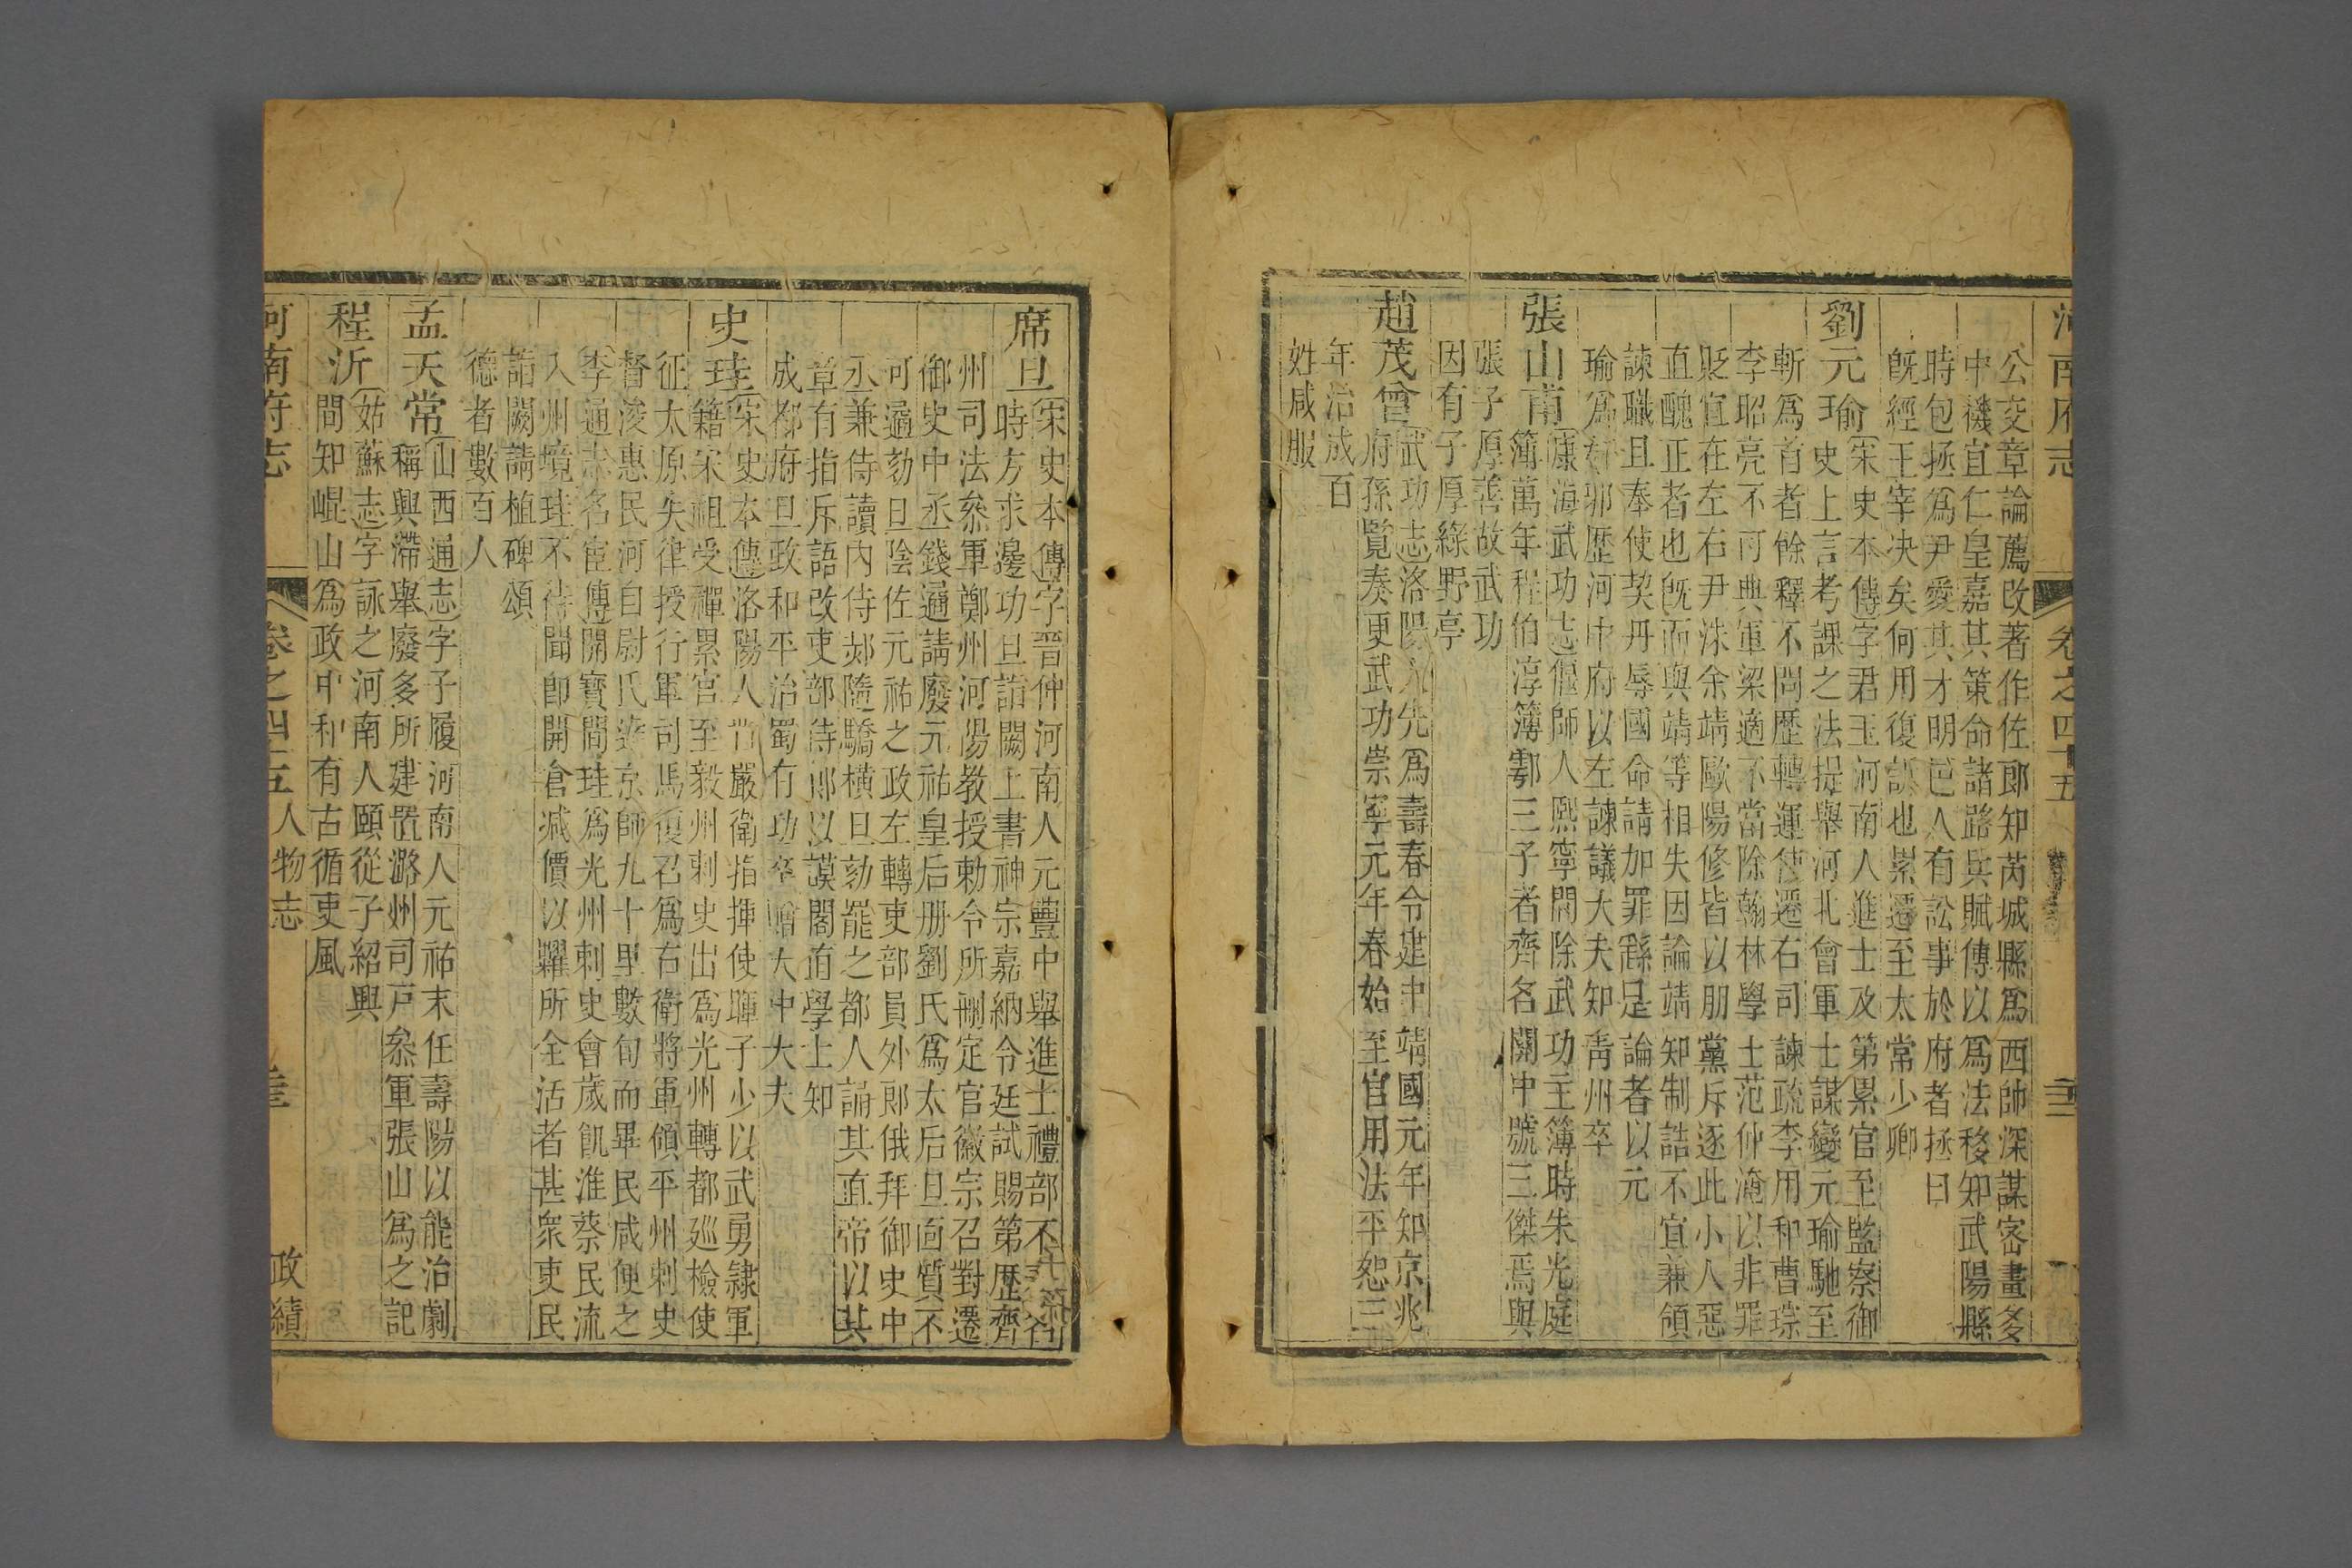 河南府志 卷之四十五
公交章論薦改著作佐郎知芮城縣爲西帥深謀密畫多
中機宜仁皇嘉其策命諸路兵賦傳以爲法移知武陽縣
時包拯爲尹愛其才明邑人有訟事於府者拯曰
既經王宰決矣何用復訴也累遷至太常少卿
劉元瑜 宋史本傳字君玉河南人進士及第累官至監察御
史上言考課之法提舉河北會軍士謀變元瑜馳至
斬爲首者餘釋不問歷轉運使遷右司諫疏李用和曹琮
李昭亮不可典軍梁適不當除翰林學士范仲淹以非罪
貶宜在左右尹洙余靖歐陽修皆以朋黨斥逐此小人惡
直醜正者也既而與靖等相失因論靖知制誥不宜兼領
諫職且奉使契丹辱國命請加罪繇是論者以元
瑜爲奸邪歷河中府以左諫議大夫知青州卒
張山甫 康海武功志偃師人熙寧間除武功主簿時朱光庭
簿萬年程伯淳簿鄠三子者齊名關中號三傑焉與
張子厚善故武功
因有子厚綠野亭
趙茂曾 武功志洛陽人先爲壽春令建中靖國元年知京兆
府孫覽奏更武功崇寧元年春始至官用法平恕三
年治成百
姓咸服
席旦 宋史本傳字晉仲河南人元豐中舉進士禮部不奏名
時方求邊功旦詣闕上書神宗嘉納令廷試賜第歷齊
州司法叅軍鄭州河陽教授勅令所刪定官徽宗召對遷
御史中丞錢遹請廢元祐皇后册劉氏爲太后旦面質不
可遹劾旦陰佐元祐之政左轉吏部員外郎俄拜御史中
丞兼侍讀內侍郝隨驕橫旦劾罷之都人誦其直帝以其
章有指斥語改吏部侍郎以謨閣直學士知
成都府旦政和平治蜀有功卒贈大中大夫
史珪 宋史本傳洛陽人晉嚴衛指揮使暉子少以武勇隸軍
籍宋祖受禪累官至毅州刺史出爲光州轉都巡檢使
征太原失律授行軍司馬復召爲右衛將軍領平州刺史
督浚惠民河自尉氏達京師九十里數旬而畢民咸便之
李通志名宦傳開寶間珪爲光州刺史會歲飢淮蔡民流
入州境珪不待聞卽開倉減價以糶所全活者甚衆吏民
詣闕請植碑頌
德者數百人
孟天常 山西通志字子履河南人元祐末任壽陽以能治劇
稱興滯舉廢多所建置潞州司戶叅軍張山爲之記
程沂 姑蘇志字詠之河南人頤從子紹興
間知崐山爲政中和有古循吏風
河南府志 卷之四十五 人物志 政績